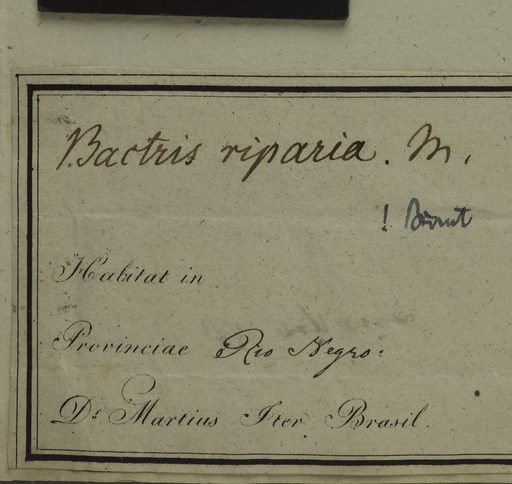 Bactris riparia. M.
!
Habitat in
Provinciae Rio Negro.
Dr Martius Iter Brasil.